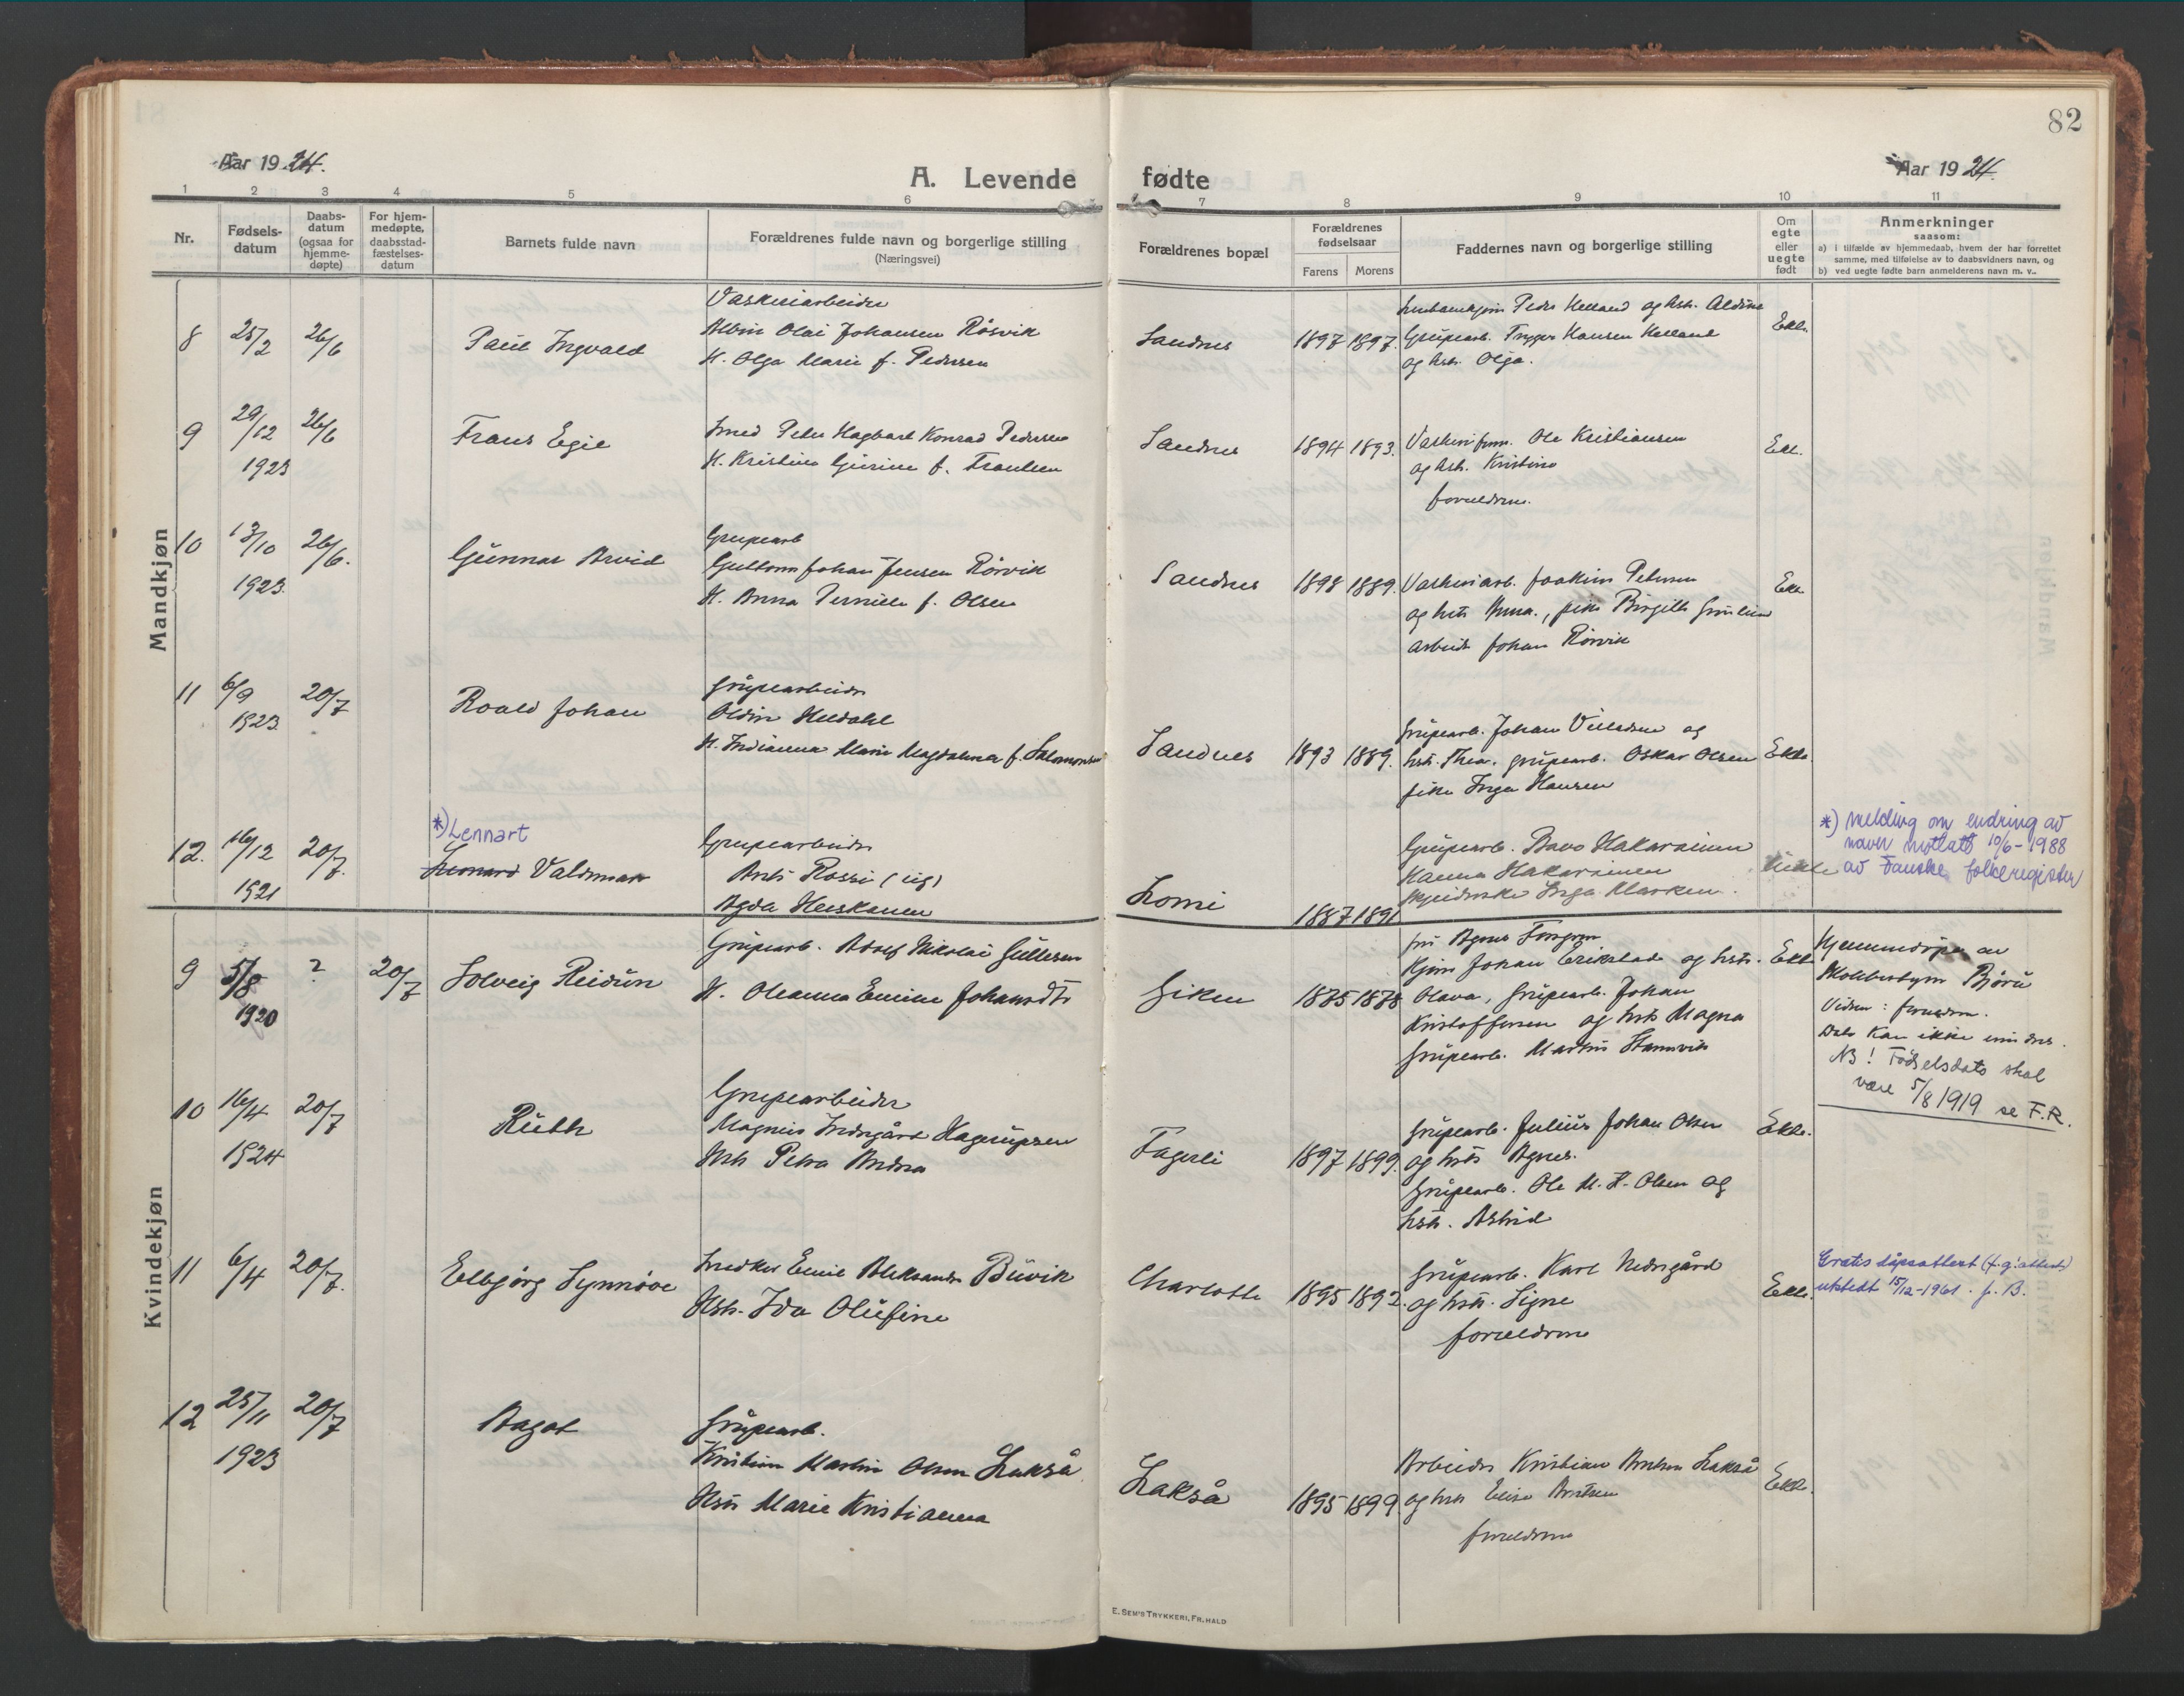 82
Aar 1924.
A. Levende
fødte
Aar 1924.
1 2 3 4 5 6 7 8 9 10 11
Nr.
Fødsels-
datum
Daabs-
datum
(ogsaa for
hjemme-
døpte)
For hjem-
medøpte,
daabsstad-
fæstelses-
datum
Barnets fulde navn
Forældrenes fulde navn og borgerlige stilling
(Næringsvei)
Forældrenes bopæl
Forældrenes
fødselsaar
Farens Morens
Faddernes navn og borgerlige stilling
Om
egte
eller
uegte
født
Anmerkninger
saasom:
a) i tilfælde av hjemmedaab, hvem der har forrettet
samme, med tilføielse av to daabsvidners navn, og
b) ved uegte fødte barn anmelderens navn m. v..
Mandkjøn
8 25/2 26/6
Paul Ingvald
Vaskeriarbeider
Albin Olai Johansen Rösvik
H. Olga Marie f. Pedersen
Sandnes 1897 1897.
Peder Helland og hst. Aldine
Gruparb. Trygve Hansen Helland
og hst. Olga.
Ekte.
9 29/12 26/6
1923
Frans Egil
Smed Peder Hagbart Konrad Pedersen
H. Kristine Gurine f. Frantsen
Sandnes 1894 1893.
Vaskeriform. Ole Kristiansen
og hst. Kristine
foreldrene.
Ekte.
10 13/10 26/6.
1923.
Gunnar Arvid
Grupearb
Guttorm Johan Jensen Rörvik
H. Anna Pernille f. Olsen
Sandnes 1898 1889.
Vaskeriarb. Joakim Petersen
og hst. Anna., pike Birgitte
arbeid. Johan Rörvik
Ekte.
11 6/9 20/7
1923.
Roald Johan
Grupearbeider
Oldin Meldahl
H. Indianna Marie Magdalena f. Salomonsen
Sandnes 1893 1889.
Grupearb. Johan Villadsen og
hst. Thea, grupearb. Oskar Olsen
pike Inga Hansen
Ekte.
12. 16/12 20/7.
1921
*) Lennart
Leonard Valdemar
Grupearbeider
Anti Rossi (ug)
Agda Heiskanen
Lomi 1887 1891
Grupearb. Bavo Hakarainen
Hanna Hakarainen
Inga Marken.
Uekte
*) Melding om endring av
navn mottatt 10/6-1988
av Fauske folkeregister
Kvindekjøn
9 5/8 ? 20/7
1920
Solveig Reidun
Grupearb. Adolf Nikolai Gullesen
H. Oleanna Emine Johansdt.
Giken 1875 1878
fru Agnes
Johan Erikstad og hst.
Olava, Grupearb. Johan
Kristoffersen og hst Magna
Grupearb. Martin Hamvik
Ekte
Hjemmedöpt av
Björü
Vidner: foreldre.
Dato kan ikke mindes.
NB! Fødselsdato skal
være 5/8 1919 se F.R.
10 16/4 20/7
1924
Ruth
Grupearbeider
Magnus Indregård Hagerupsen
Hst Petra Andrea
Fagerli 1897 1899.
Grupearb. Julius Johan Olsen
og hst Agnes.
Grupearb. Ole M. H. Olsen og
hst. Astrid
Ekte.
11 6/4 20/7.
Elbjørg Synnöve
Snedker Emil Aleksander Buvik
Hst. Ida Olufine
Charlotte 1895 1892.
Grupearb. Karl Nedregård
og hst. Signe
foreldrene
Ekte.
Gratis dåpsattest (f.g. attest)
utstedt 15/12-1961. f. B.
12 25/11 20/7
1923
Aagot
Grupearb.
Kristian Martin Olsen Lakså
Hst Marie Kristianna
Lakså 1895 1899.
Arbeider Kristian Arntsen Lakså
og hst Elise Arntsen
foreldrene
Ekte.
E. SEM'S TRYKKERI, FR. HALD